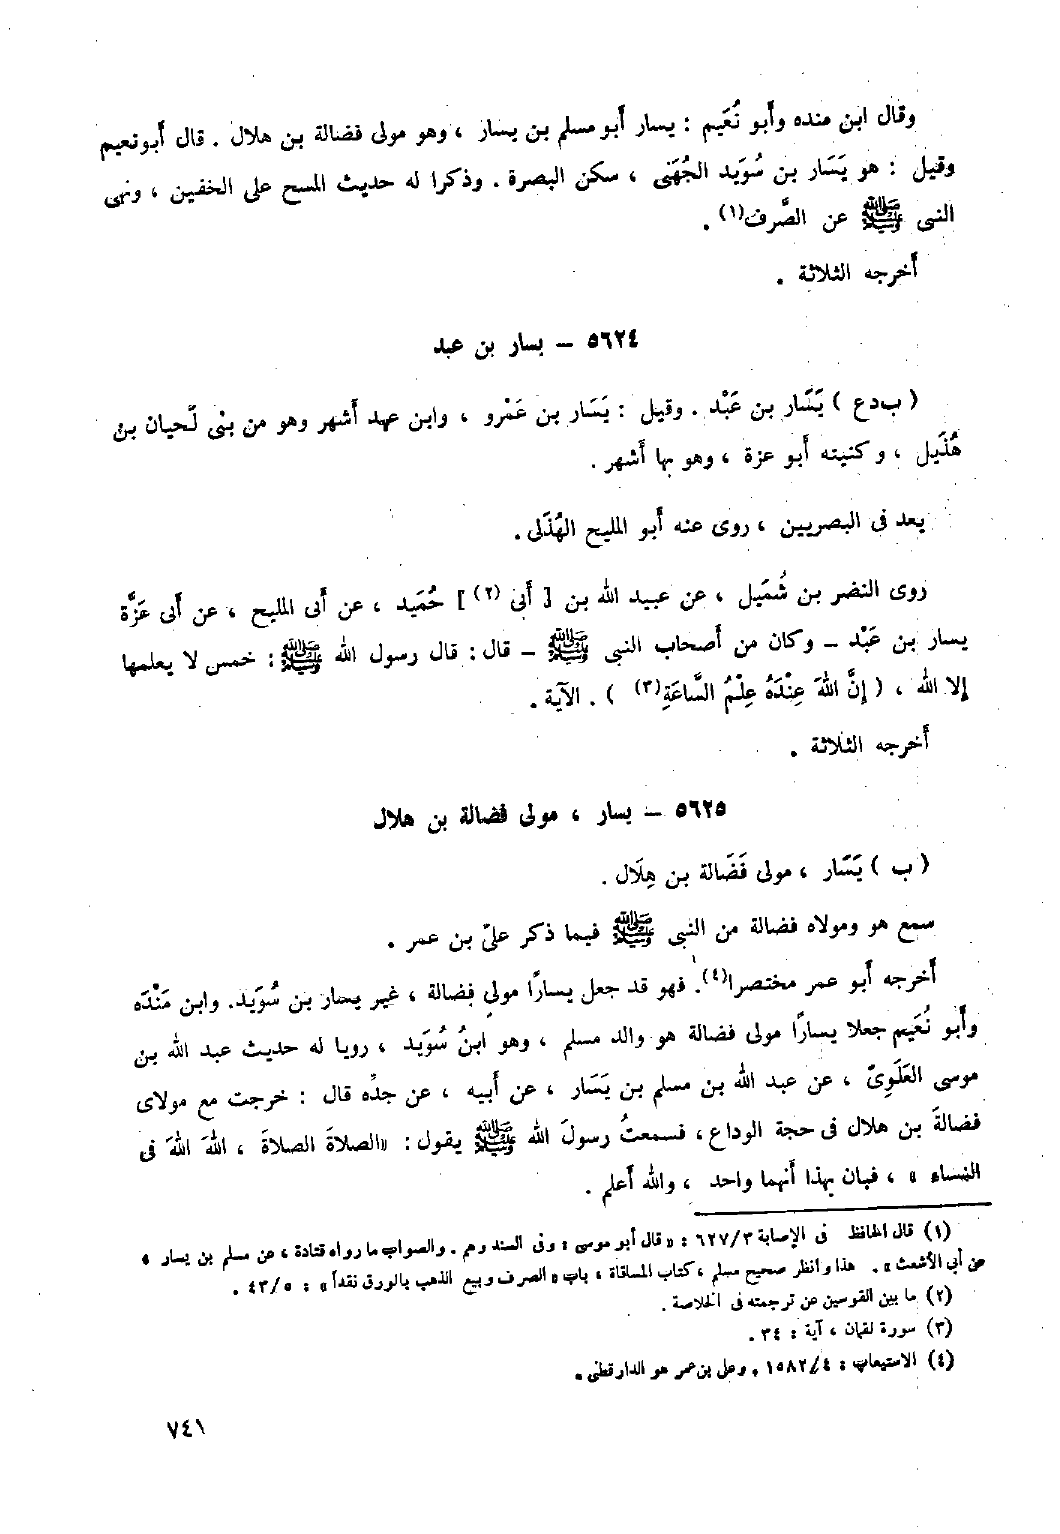 وقال ابن منده وأبو نُعَيم : يسار أبو مسلم بن يسار ، وهو مولى فضالة بن هلال . قال أبو نعيم
وقيل : هو يَسَار بن سُوَيد الجُهَنى ، سكن البصرة . وذكرا له حديث المسح على الخفين ، ونهى
النبى ﷺ عن الصَّرف(١) .
أخرجه الثلاثة .
٥٦٢٤ – يسار بن عبد
( ب د ع ) يَسَار بن عَبْد . وقيل : يَسَار بن عَمْرو ، وابن عبد أشهر وهو من بنى لَحيان بن
هُذَيل ، وكنيته أبو عزة ، وهو بها أشهر .
يعد فى البصريين ، روى عنه أبو المليح الهُذَلى .
روى النضر بن شُمَيل ، عن عبيد الله بن [ أبى (٢) ] حُمَيد ، عن أبى المليح ، عن أبى عَزَّة
يسار بن عَبْد – وكان من أصحاب النبى ﷺ – قال : قال رسول الله ﷺ : خمس لا يعلمها
إلا الله ، ( إنَّ اللهَ عِنْدَهُ عِلْمُ السَّاعَةِ(٣) ) . الآية .
أخرجه الثلاثة .
٥٦٢٥ – يسار ، مولى فضالة بن هلال
( ب ) يَسَار ، مولى فَضَالة بن هِلَال .
سمع هو ومولاه فضالة من النبى ﷺ فيما ذكر علىّ بن عمر .
أخرجه أبو عمر مختصرا(٤) . فهو قد جعل يسارًا مولى فضالة ، غير يسار بن سُوَيد. وابن مَنْدَه
وأبو نُعَيم جعلا يسارًا مولى فضالة هو والد مسلم ، وهو ابنُ سُوَيد ، رويا له حديث عبد الله بن
موسى العَلَوِىّ ، عن عبد الله بن مسلم بن يَسَار ، عن أبيه ، عن جدِّه قال : خرجت مع مولاى
فضالةَ بن هلال فى حجة الوداع ، فسمعتُ رسولَ الله ﷺ يقول : «الصلاةَ الصلاةَ ، اللهَ اللهَ فى
النساء » ، فبان بهذا أنهما واحد ، والله أعلم .
(١) قال الحافظ فى الإصابة ٦٢٧/٣ : « قال أبو موسى : وفى السند وهم . والصواب ما رواه قتادة ، عن مسلم بن يسار ،
عن أبى الأشعث » . هذا وانظر صحيح مسلم ، كتاب المساقاة ، باب « الصرف وبيع الذهب بالورق نقداً » : ٤٣/٥ .
(٢) ما بين القوسين عن ترجمته فى الخلاصة .
(٣) سورة لقمان ، آية : ٣٤ .
(٤) الاستيعاب : ١٥٨٢/٤ . وعلى بن عمر هو الدارقطنى .
٧٤١